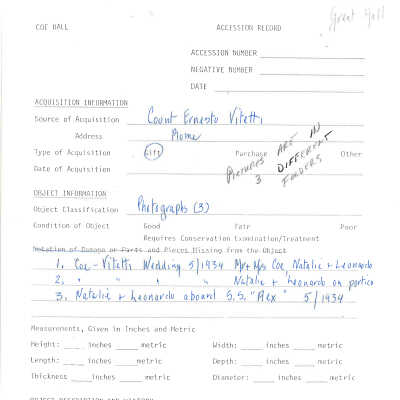 Great Hall
COE HALL ACCESSION RECORD
ACCESSION NUMBER
NEGATIVE NUMBER
DATE
ACQUISITION INFORMATION
Source of Acquisition Count Ernesto Vitetti
Address Rome
Type of Acquisition Gift Purchase Other
Date of Acquisition
PICTURES ARE IN
3 DIFFERENT
FOLDERS
OBJECT INFORMATION
Object Classification Photographs (3)
Condition of Object Good Fair Poor
Requires Conservation Examination/Treatment
Notation of Damage or Parts and Pieces Missing from the Object
1. Coe-Vitetti Wedding 5/1934 Mr + Mrs Coe, Natalie + Leonardo
2. " " " " Natalie + Leonardo on portico
3. Natalie + Leonardo aboard S.S. "Rex" 5/1934
Measurements, Given in Inches and Metric
Height: inches metric Width: inches metric
Length: inches metric Depth: inches metric
Thickness inches metric Diameter: inches metric
OBJECT DESCRIPTION AND HISTORY